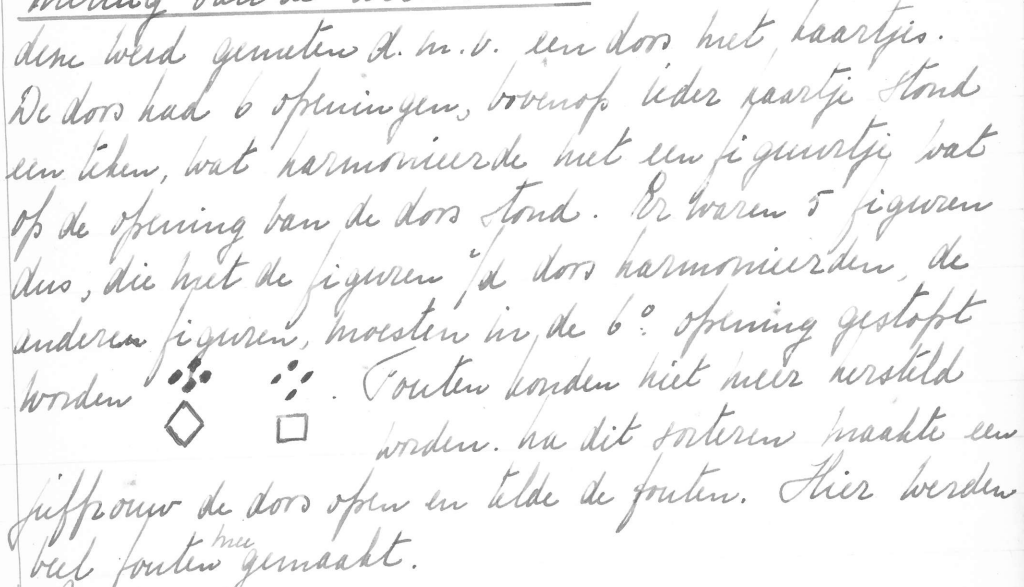 deze werd gemeten d.m.v. een doos met kaartjes.
De doos had 6 openingen, bovenop ieder kaartje stond
een teken, wat harmonieerde met een figuurtje wat
op de opening van de doos stond. Er waren 5 figuren
dus, die met de figuren v/d doos harmonieerden, de
anderen figuren, moesten in de 6e opening gestopt
worden . Fouten konden niet meer hersteld
worden. na dit sorteren maakte een
juffrouw de doos open en telde de fouten. Hier werden
veel fouten mee gemaakt.